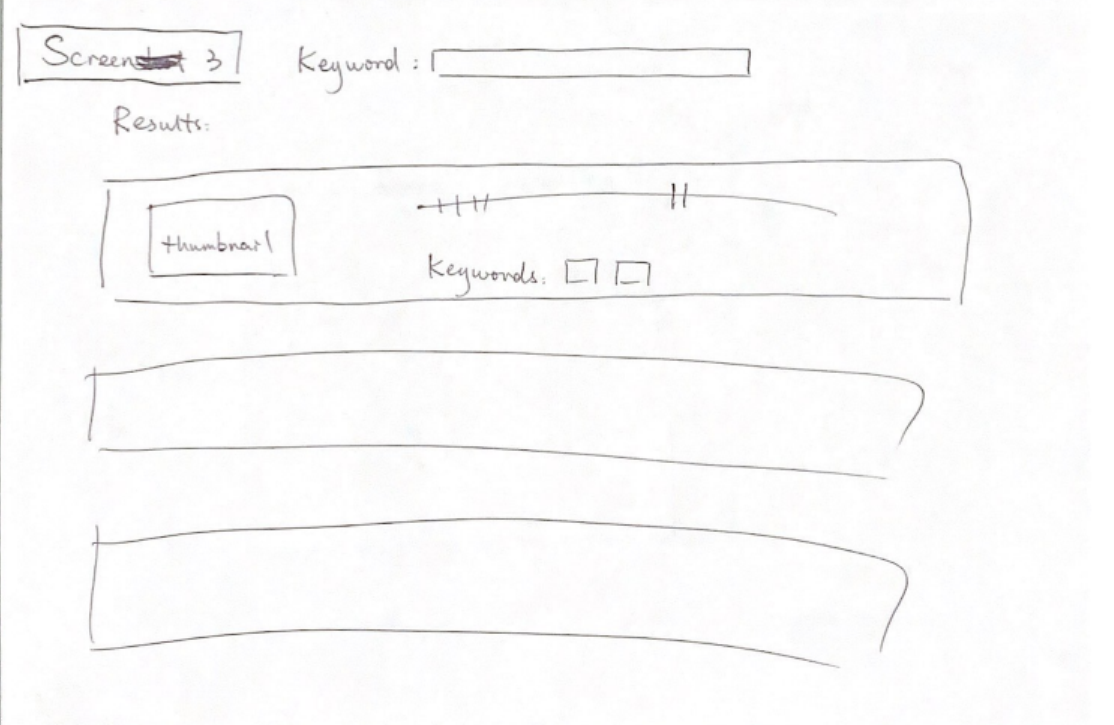 Screen 3 Keyword :
Results:
thumbnail
Keywords: